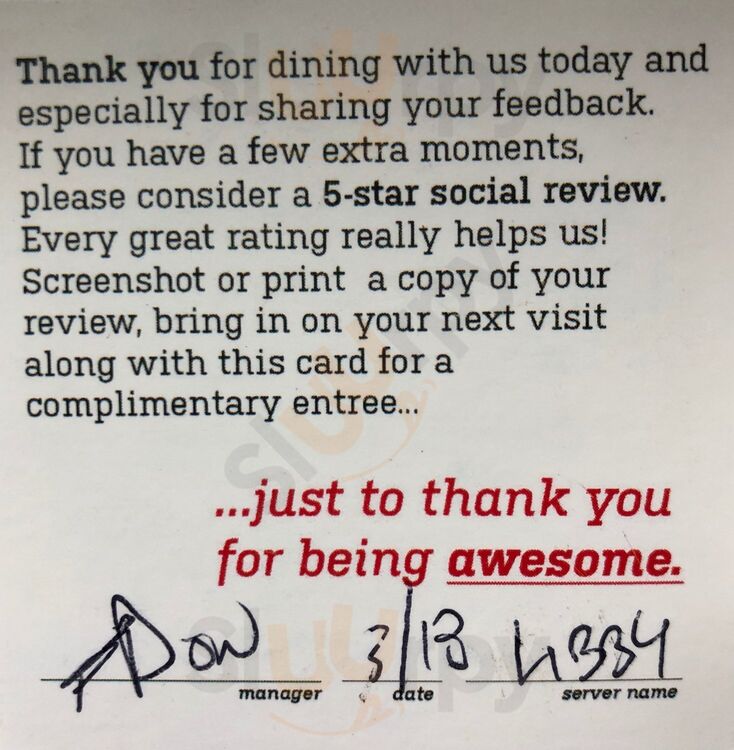 Thank you for dining with us today and
especially for sharing your feedback.
If you have a few extra moments,
please consider a 5-star social review.
Every great rating really helps us!
Screenshot or print a copy of your
review, bring in on your next visit
along with this card for a
complimentary entree...
...just to thank you
for being awesome.
3/13
manager date server name